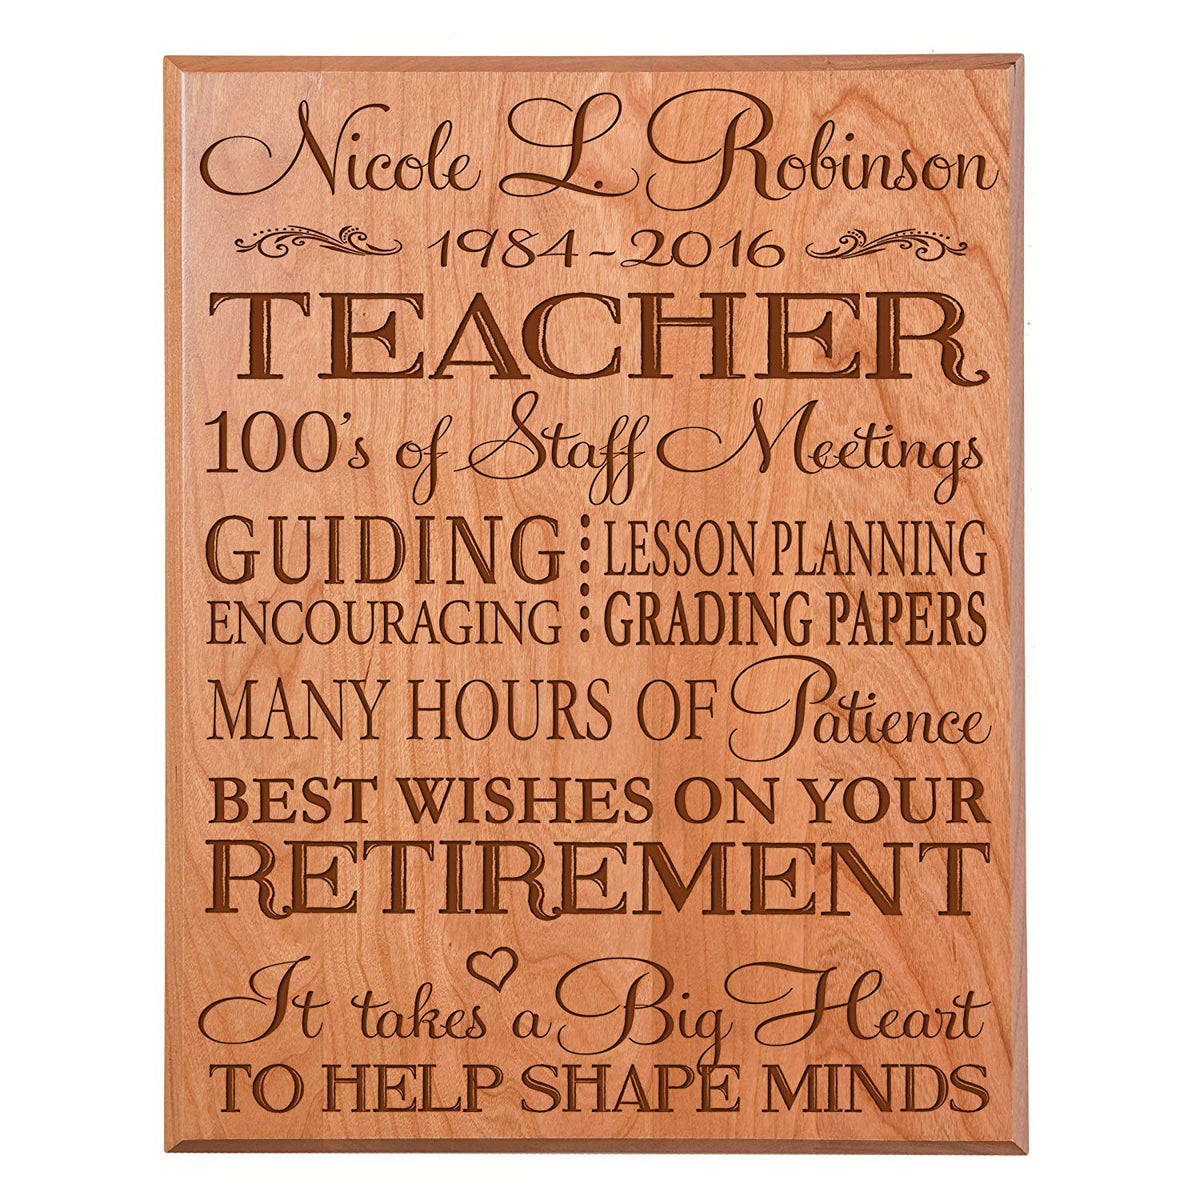 Nicole L. Robinson
1984-2016
TEACHER
100's of Staff Meetings
GUIDING
ENCOURAGING
LESSON PLANNING
GRADING PAPERS
MANY HOURS OF Patience
BEST WISHES ON YOUR
RETIREMENT
It takes a Big Heart
TO HELP SHAPE MINDS